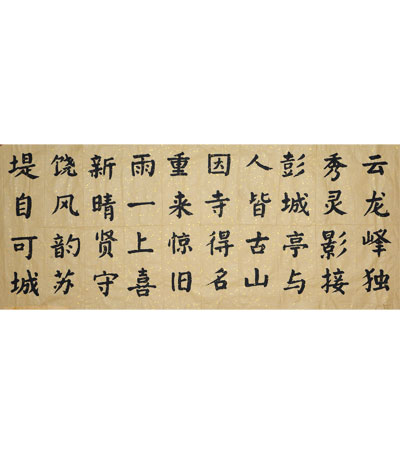 云龙峰独
秀灵影接
彭城亭与
人皆古山
因寺得名
重来惊旧
雨一上喜
新晴贤守
饶风韵苏
堤自可城